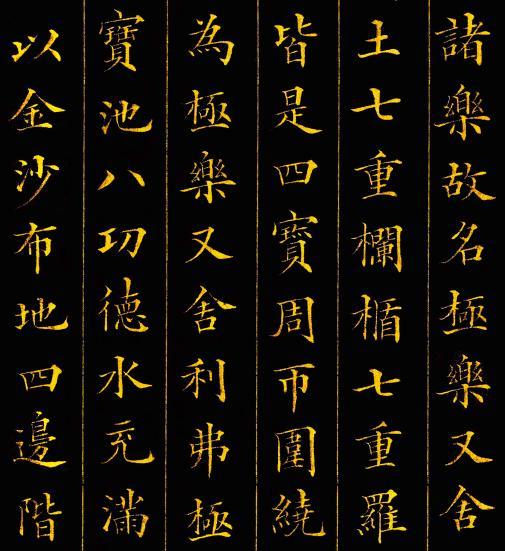 諸樂故名極樂又舍
土七重欄楯七重羅
皆是四寶周帀圍繞
為極樂又舍利弗極
寶池八功德水充滿
以金沙布地四邊階